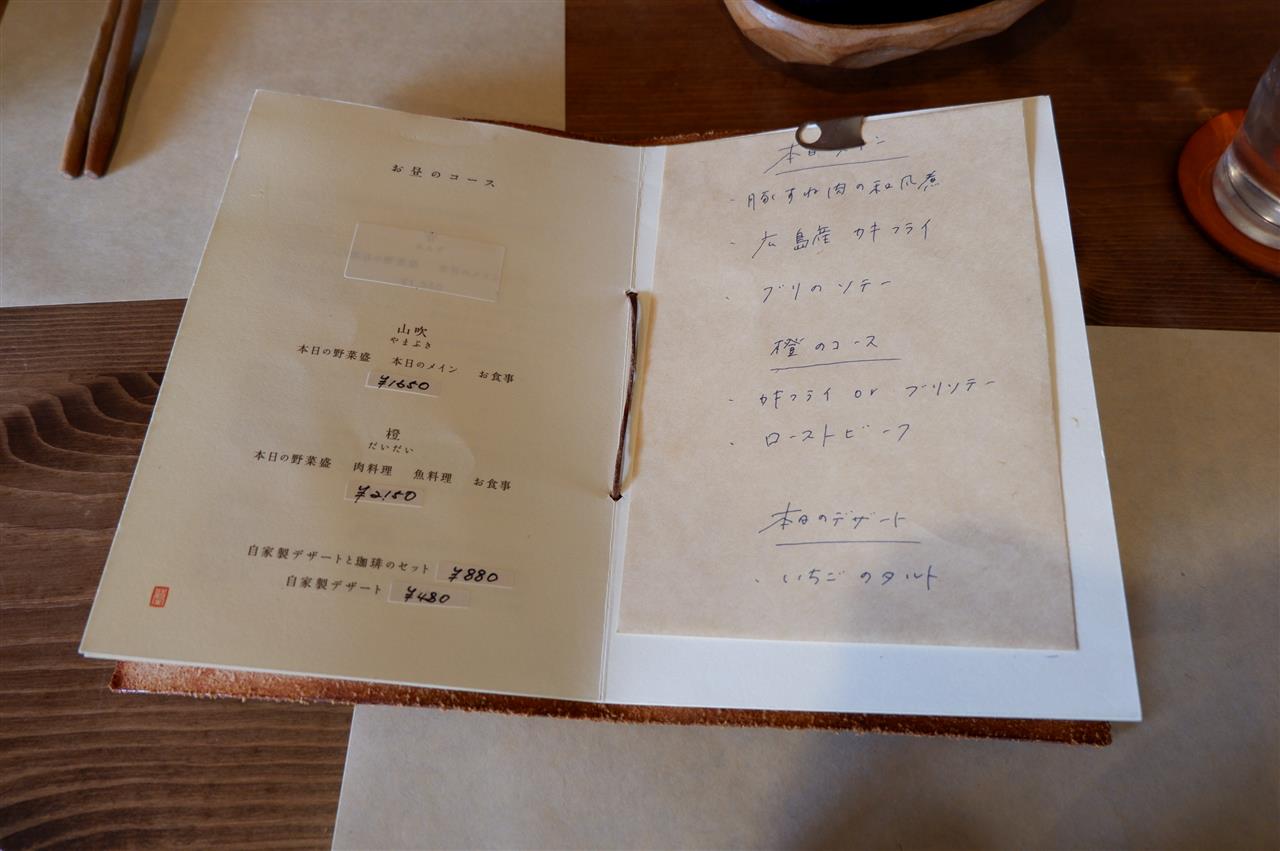 お昼のコース
山吹
やまぶき
本日の野菜盛 本日のメイン お食事
¥1650
橙
だいだい
本日の野菜盛 肉料理 魚料理 お食事
¥2,150
自家製デザートと珈琲のセット ¥880
自家製デザート ¥480
本日メイン
・豚すね肉の和風煮
・広島産カキフライ
・ブリのソテー
橙のコース
・カキフライ or ブリソテー
・ローストビーフ
本日のデザート
・いちごのタルト